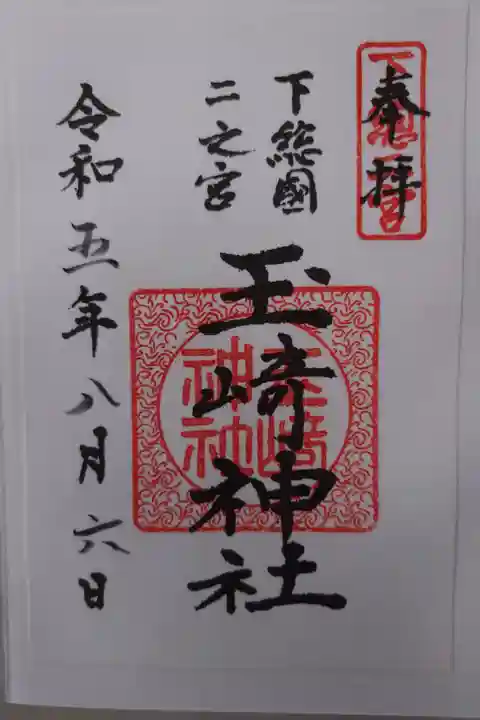 奉拝
下總二宮
下総國
二之宮
玉崎神社
玉崎神社
令和五年八月六日